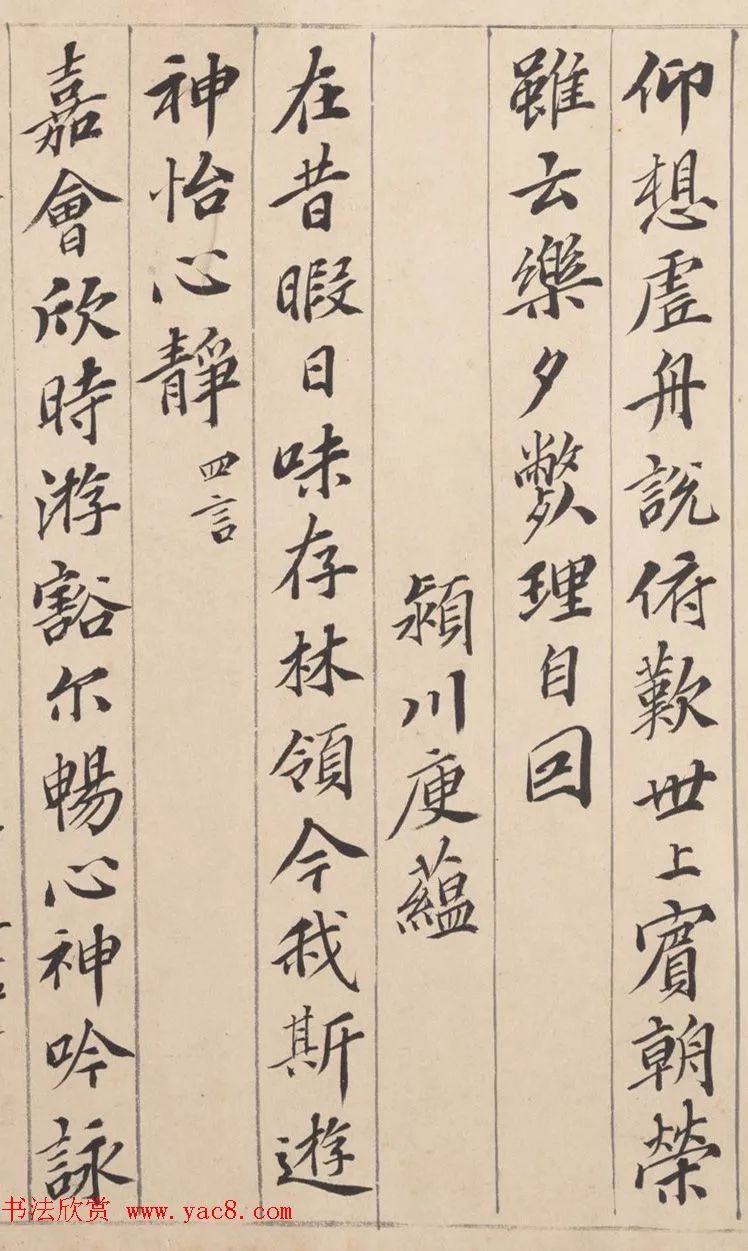 仰想虛舟說俯歎世上賓朝榮
雖云樂夕斃理自回
潁川庾蘊
在昔暇日味存林領今我斯遊
神怡心靜 四言
嘉會欣時游豁尓暢心神吟詠
书法欣赏 www.yac8.com